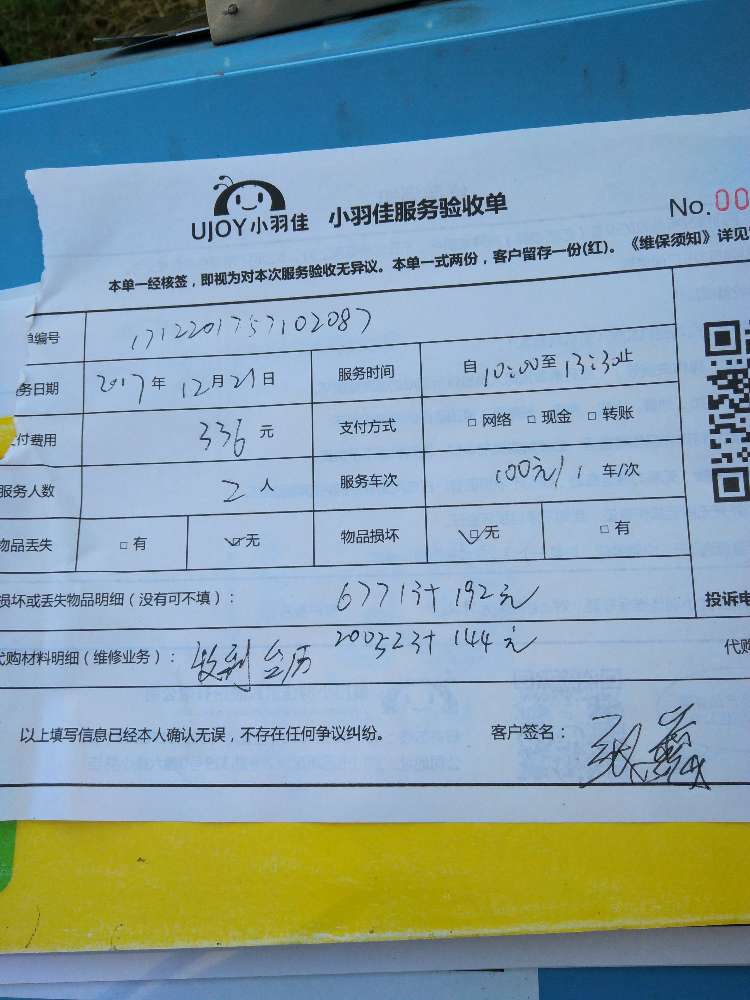 UJOY小羽佳 小羽佳服务验收单 No.00
本单一经核签，即视为对本次服务验收无异议。本单一式两份，客户留存一份(红)。《维保须知》详见
单编号 1712201757102087
务日期 2017年12月21日 服务时间 自10:00至13:30止
支付费用 336元 支付方式 □网络 □现金 □转账
服务人数 2人 服务车次 100元/1车/次
物品丢失 □有 ☑无 物品损坏 ☑无 □有
损坏或丢失物品明细（没有可不填）： 67713+192元
投诉电
代购材料明细（维修业务）： 收到台历 200523+144元
代购
以上填写信息已经本人确认无误，不存在任何争议纠纷。 客户签名：